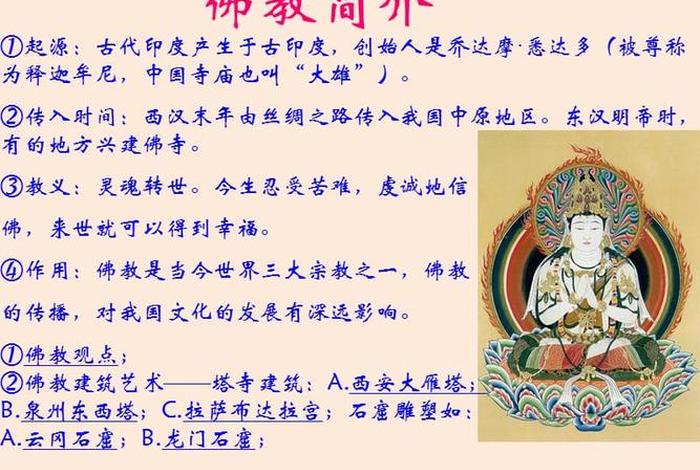 佛教简介
①起源：古代印度产生于古印度，创始人是乔达摩·悉达多（被尊称
为释迦牟尼，中国寺庙也叫“大雄”）。
②传入时间：西汉末年由丝绸之路传入我国中原地区。东汉明帝时，
有的地方兴建佛寺。
③教义：灵魂转世。今生忍受苦难，虔诚地信
佛，来世就可以得到幸福。
④作用：佛教是当今世界三大宗教之一，佛教
的传播，对我国文化的发展有深远影响。
①佛教观点；
②佛教建筑艺术——塔寺建筑：A.西安大雁塔；
B.泉州东西塔；C.拉萨布达拉宫；石窟雕塑如：
A.云冈石窟；B.龙门石窟；